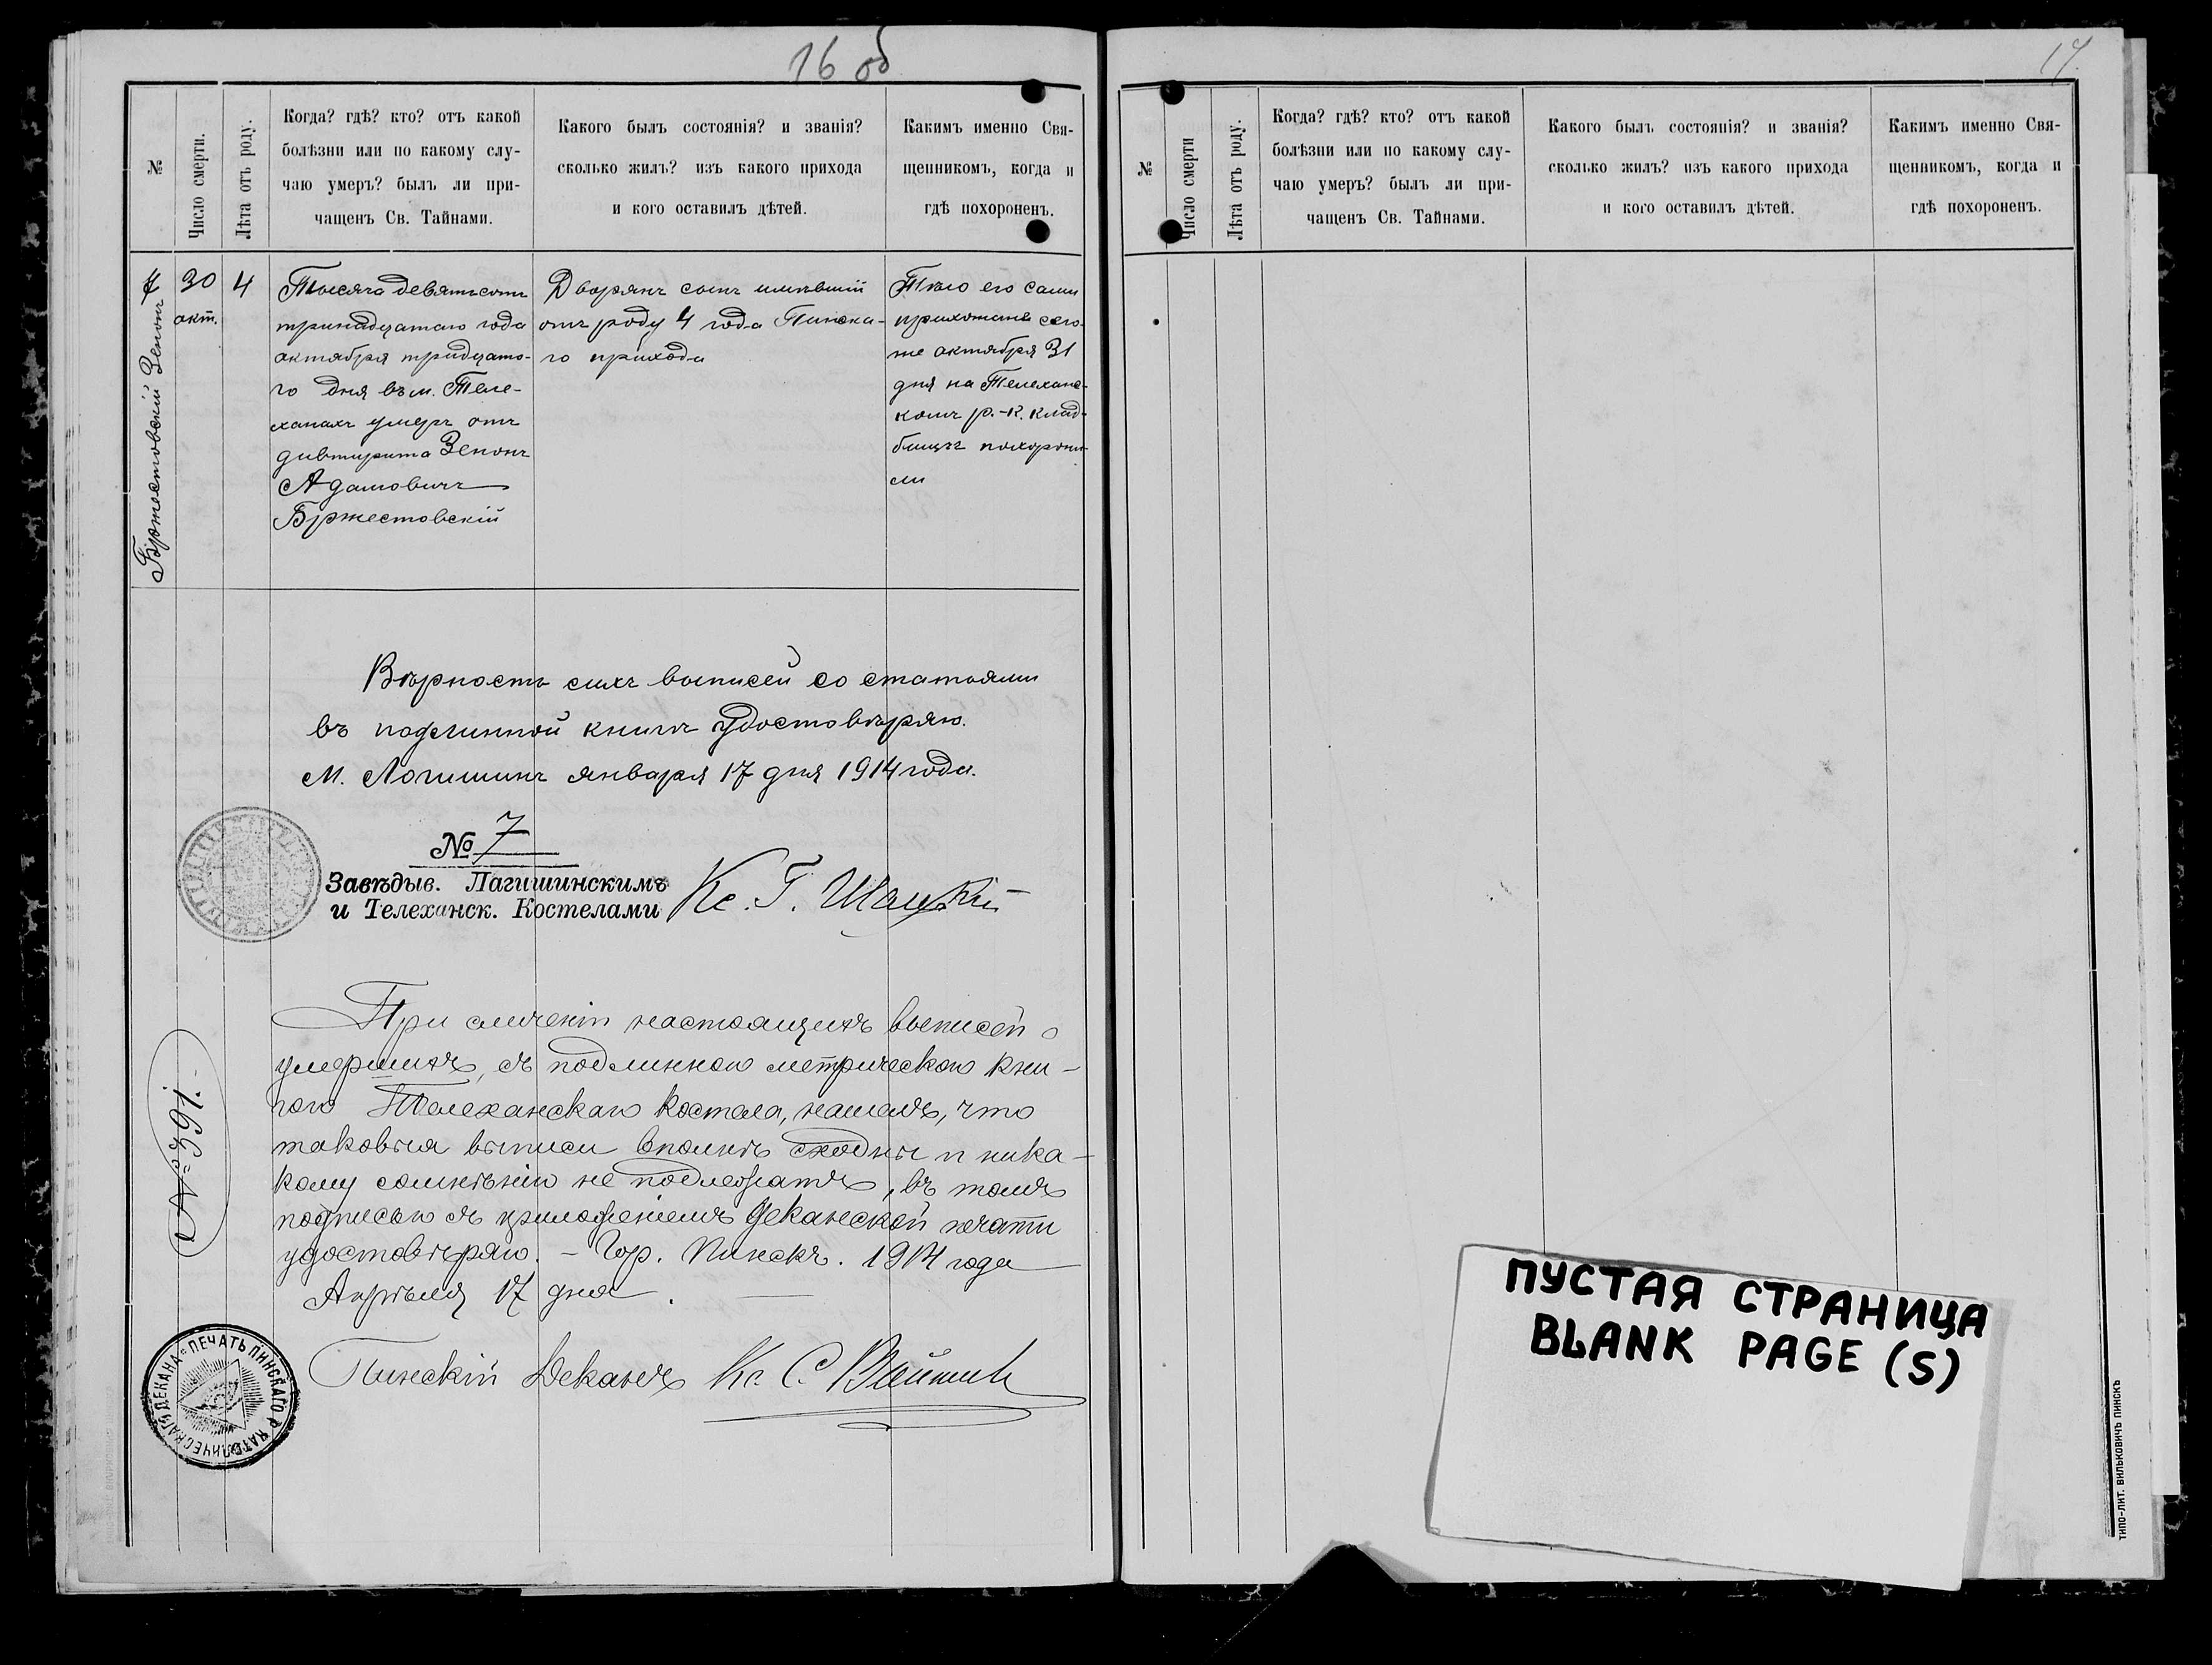 16 об
№
Число смерти.
Лѣта отъ роду.
Когда? гдѣ? кто? отъ какой
болѣзни или по какому слу-
чаю умеръ? былъ ли при-
чащенъ Св. Тайнами.
Какого былъ состоянія? и званія?
сколько жилъ? изъ какого прихода
и кого оставилъ дѣтей.
Какимъ именно Свя-
щенникомъ, когда и
гдѣ похороненъ.
Бржестовскій Зенонъ
30
окт.
4
Тысяча девятьсотъ
тринадцатаго года
октября тридцато-
го дня въ м. Теле-
ханахъ умеръ отъ
дифтерита Зенонъ
Адамовичъ
Бржестовскій
Дворянъ сынъ имѣвшій
отъ роду 4 года Пинска-
го прихода
Тѣло его сами
прихожане сего-
же октября 31
дня на Телехан-
комъ р.-к. клад-
бищѣ похорони-
ли
Вѣрность сихъ выписей со статьями
въ подлинной книгѣ удостовѣряю.
М. Логишинъ января 17 дня 1914 года.
№ 7
Завѣдыв. Лагишинскимъ
и Телеханск. Костелами
Кс. Г. Шацкій
При сличеніи настоящихъ выписей о
умершихъ, съ подлинною метрическою кни-
гою Телеханскаго костела, нашелъ, что
таковыя выписи вполнѣ сходны и ника-
кому сомнѣнію не подлежатъ, въ томъ
подписью съ приложеніемъ Деканской печати
удостовѣряю. – Гор. Пинскъ. 1914 года
Апрѣля 17 дня.
№ 391.
Пинскій Деканъ Кс. С.
ПЕЧАТЬ ПИНСКАГО Р. КАТОЛИЧЕСКАГО ДЕКАНА
17.
№
Число смерти
Лѣта отъ роду.
Когда? гдѣ? кто? отъ какой
болѣзни или по какому слу-
чаю умеръ? былъ ли при-
чащенъ Св. Тайнами.
Какого былъ состоянія? и званія?
сколько жилъ? изъ какого прихода
и кого оставилъ дѣтей.
Какимъ именно Свя-
щенникомъ, когда и
гдѣ похороненъ.
ПУСТАЯ СТРАНИЦА
BLANK PAGE (S)
ТИПО-ЛИТ. ВИЛЬКОВИЧЪ ПИНСКЪ